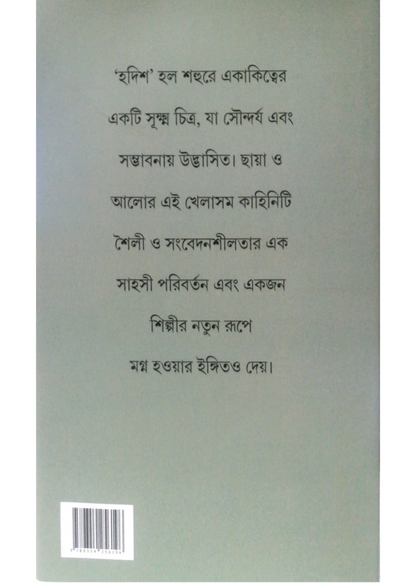 ‘হদিশ’ হল শহুরে একাকিত্বের
একটি সূক্ষ্ম চিত্র, যা সৌন্দর্য এবং
সম্ভাবনায় উদ্ভাসিত। ছায়া ও
আলোর এই খেলাসম কাহিনিটি
শৈলী ও সংবেদনশীলতার এক
সাহসী পরিবর্তন এবং একজন
শিল্পীর নতুন রূপে
মগ্ন হওয়ার ইঙ্গিতও দেয়।